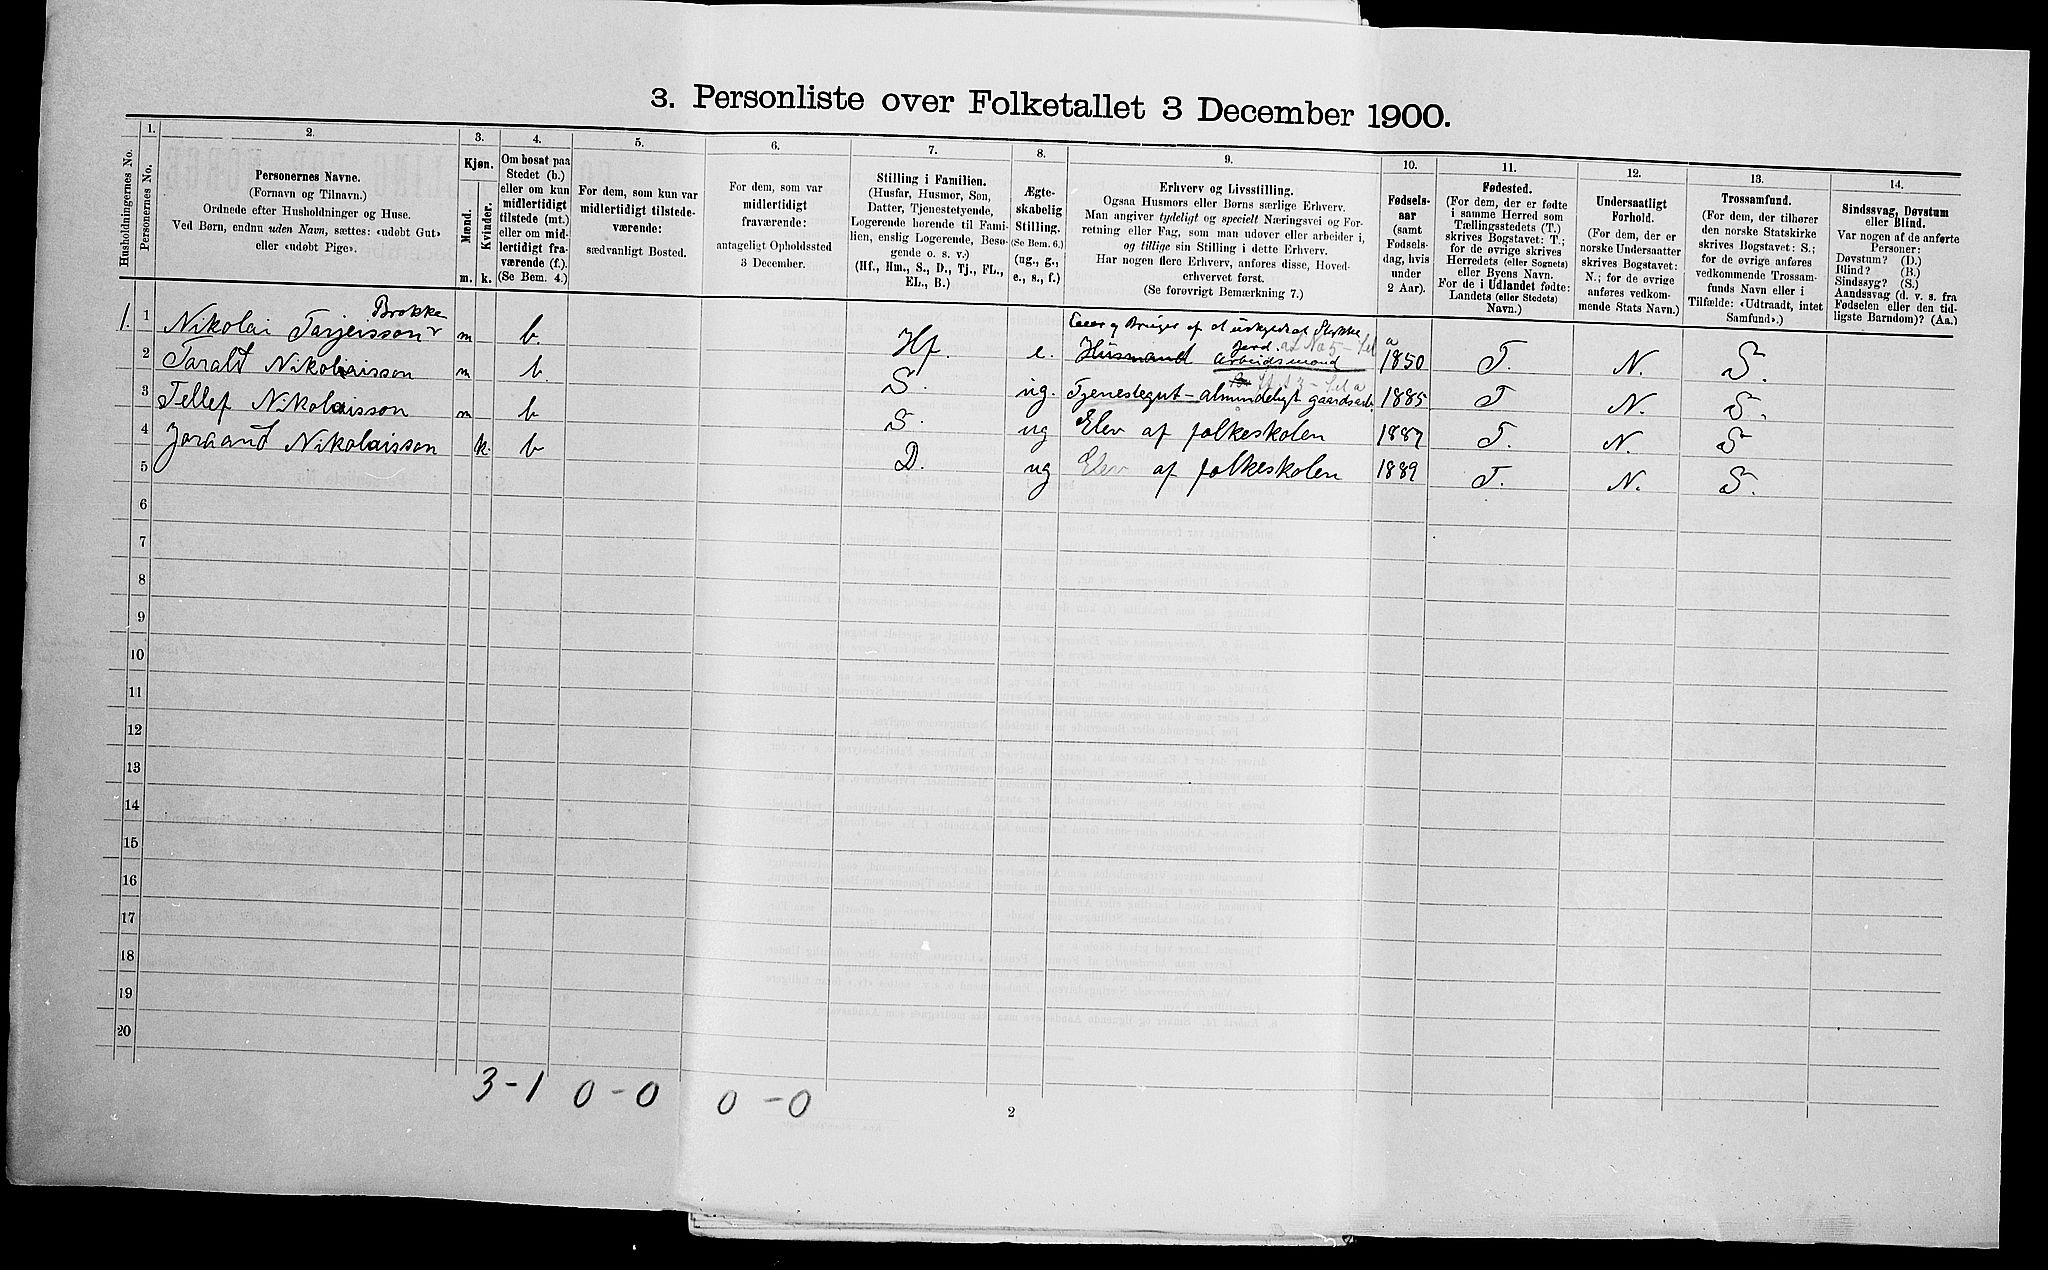 3. Personliste over Folketallet 3 December 1900.
Husholdningernes No.
1.
Personernes No.
2.
Personernes Navne.
(Fornavn og Tilnavn.)
Ordnede efter Husholdninger og Huse.
Ved Børn, endnu uden Navn, sættes: «udøbt Gut»
eller «udøbt Pige».
3.
Kjøn.
Mænd.
Kvinder.
m.
k.
4.
Om bosat paa
Stedet (b.)
eller om kun
midlertidigt
tilstede (mt.)
eller om mid-
lertidigt fra-
værende (f.).
(Se Bem. 4.)
5.
For dem, som kun var
midlertidigt tilstede-
værende:
sædvanligt Bosted.
6.
For dem, som var
midlertidigt
fraværende:
antageligt Opholdssted
3 December.
7.
Stilling i Familien.
(Husfar, Husmor, Søn,
Datter, Tjenestetyende,
Logerende hørende til Fami-
lien, enslig Logerende, Besø-
gende o. s. v.)
(Hf., Hm., S., D., Tj., FL.,
EL., B.)
8.
Ægte-
skabelig
Stilling.
(Se Bem. 6.)
(ug., g.,
e., s., f.)
9.
Erhverv og Livsstilling.
Ogsaa Husmors eller Børns særlige Erhverv.
Man angiver tydeligt og specielt Næringsvei og For-
retning eller Fag, som man udover eller arbeider i,
og tillige sin Stilling i dette Erhverv.
Har nogen flere Erhverv, anføres disse, Hoved-
erhvervet først.
(Se forøvrigt Bemærkning 7.)
10.
Fødsels-
aar
(samt
Fødsels-
dag, hvis
under
2 Aar).
11.
Fødested.
(For dem, der er fødte
i samme Herred som
Tællingsstedets (T.)
skrives Bogstavet: T.;
for de øvrige skrives
Herredets (eller Sognets)
eller Byens Navn.
For de i Udlandet fødte:
Landets (eller Stedets)
Navn.)
12.
Undersaatligt
Forhold.
(For dem, der er
norske Undersaatter
skrives Bogstavet:
N.; for de øvrige
anføres vedkom-
mende Stats Navn.)
13.
Trossamfund.
(For dem, der tilhører
den norske Statskirke
skrives Bogstavet: S.;
for de øvrige anføres
vedkommende Trossam-
funds Navn eller i
Tilfælde: «Udtraadt, intet
Samfund».)
14.
Sindssvag, Døvstum
eller Blind.
Var nogen af de anførte
Personer:
Døvstum? (D.)
Blind? (B.)
Sindssyg? (S.)
Aandssvag (d. v. s. fra
Fødselen eller den tid-
ligste Barndom)? (Aa.)
Brokke
Eier og Bruger af et uskyldsat Stykke
Jord. af No 5 - Sel a
1. 1 Nikolai Tarjeisson m b Hf. e. Husmand arbeidsmand 1850 T. N. S.
2 Taralt Nikolaisson m b. S. ug. Tjenestegut - almindeligt gaardsarb. 1885 T N. S.
3 Tellef Nikolaisson m b S. ug Elev af folkeskolen 1887 T. N. S
4 Joraand Nikolaisson k. b D. ug Elev af folkeskolen 1889 T. N. S.
5
6
7
8
9
10
11
12
13
14
15
16
17
18
19
20
3-1 0-0 0-0
2